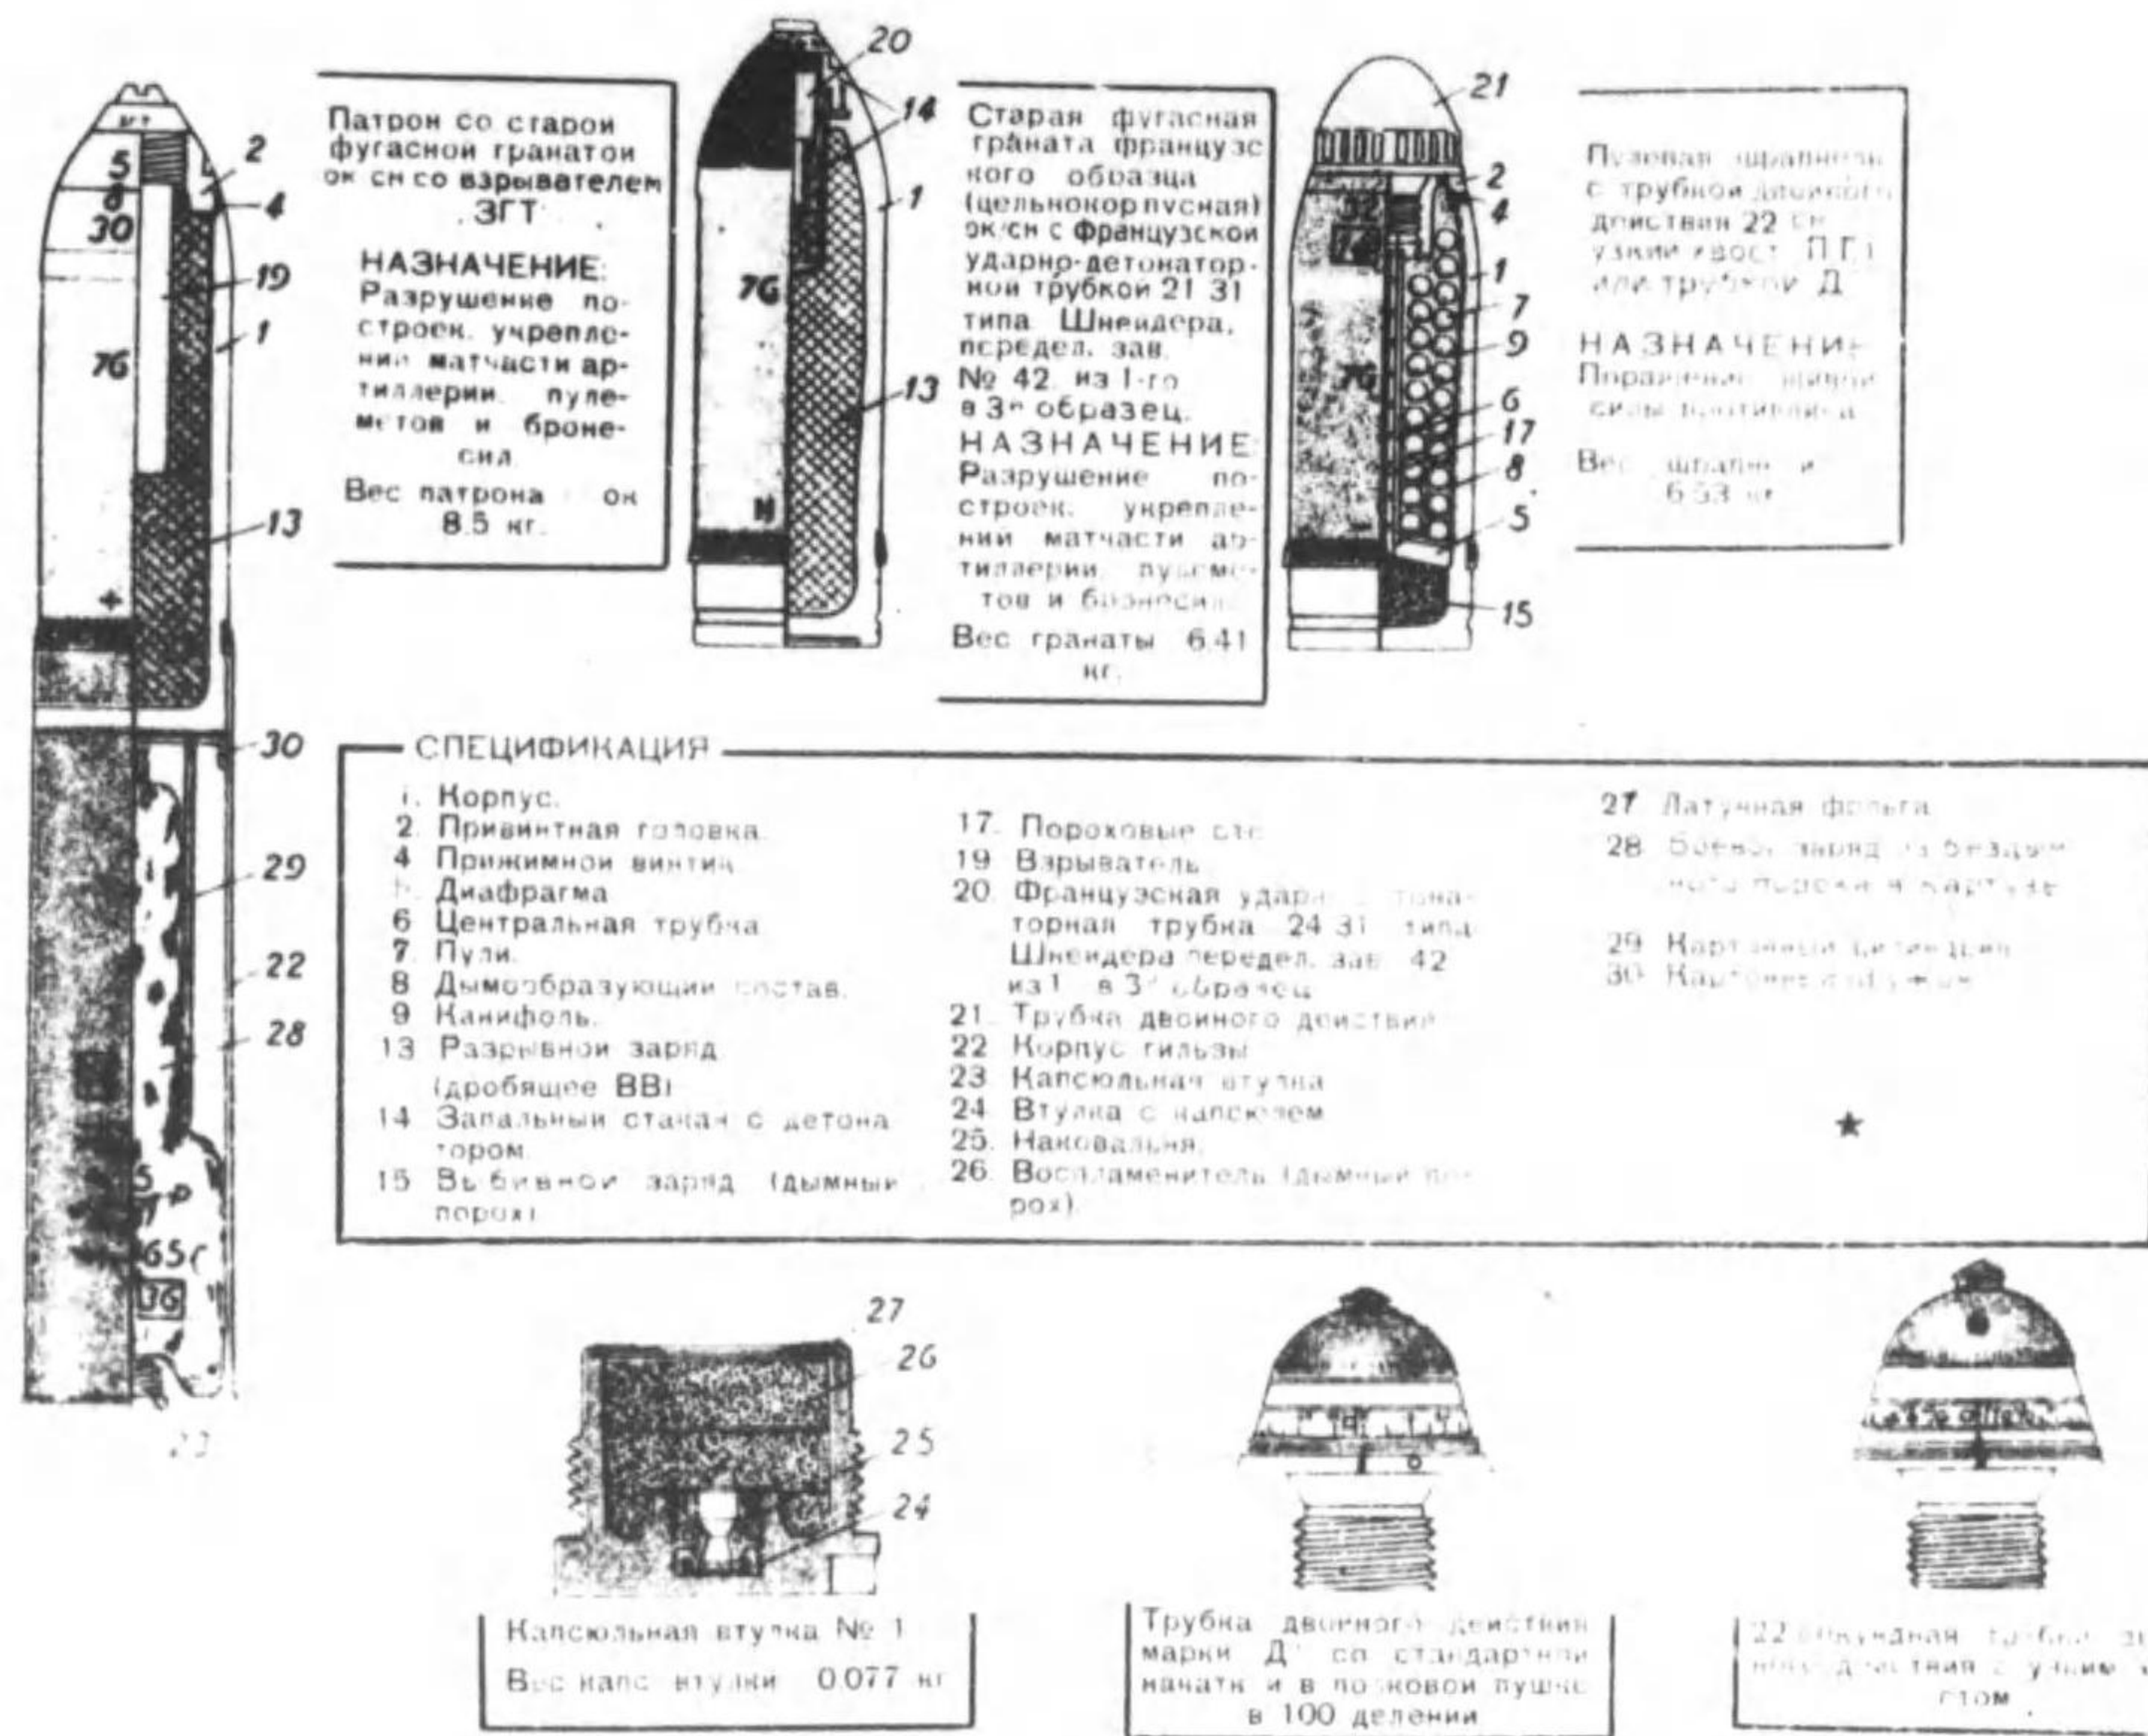 Патрон со старой
фугасной гранатой
ок сн со взрывателем
ЗГТ
НАЗНАЧЕНИЕ:
Разрушение по-
строек, укрепле-
ний матчасти ар-
тиллерии, пуле-
метов и броне-
сил.
Вес патрона ок
8.5 кг.
5
6
30
76
+
2
4
19
1
13
30
29
22
28
65г
76
23
Старая фугасная
граната французс
кого образца
(цельнокорпусная)
ок/сн с французской
ударно-детонатор-
ной трубкой 21 31
типа Шнейдера,
передел. зав.
№ 42. из 1-го
в 3й образец.
НАЗНАЧЕНИЕ
Разрушение по-
строек, укрепле-
ний матчасти ар-
тиллерии, пулеме-
тов и бронесил.
Вес гранаты 6.41
кг.
20
14
1
13
76
Н
Пулевая шрапнель
с трубкой двойного
действия 22 сн
узкий хвост
или трубкой Д
НАЗНАЧЕНИЕ
Поражение живой
силы противника
Вес шрапнели
6.53 кг
21
2
4
1
7
9
6
17
8
5
15
76
СПЕЦИФИКАЦИЯ
1. Корпус.
2. Привинтная головка.
4 Прижимной винтик
5. Диафрагма
6 Центральная трубка
7. Пули.
8 Дымообразующий состав.
9 Канифоль.
13 Разрывной заряд
(дробящее ВВ)
14 Запальный стакан с детона
тором.
15 Выбивной заряд (дымный
порох)
17. Пороховые
19 Взрыватель.
20. Французская
торная трубка 24 31 типа
Шнейдера передел. зав. 42
из 1 в 3й образец
21. Трубка двойного действия
22 Корпус гильзы
23 Капсюльная втулка
24 Втулка с капсюлем
25. Наковальня.
26. Воспламенитель (дымный по-
рох).
27 Латунная фольга
28 Боевой заряд из бездым
ного пороха в картузе
29 Картонный цилиндрик
30 Картонный кружок
27
26
25
24
Капсюльная втулка № 1
Вес капс. втулки 0.077 кг
Трубка двойного действия
марки Д со стандартной
в полковой пушке
в 100 делений
22 секундная трубка
действия с узким
стом